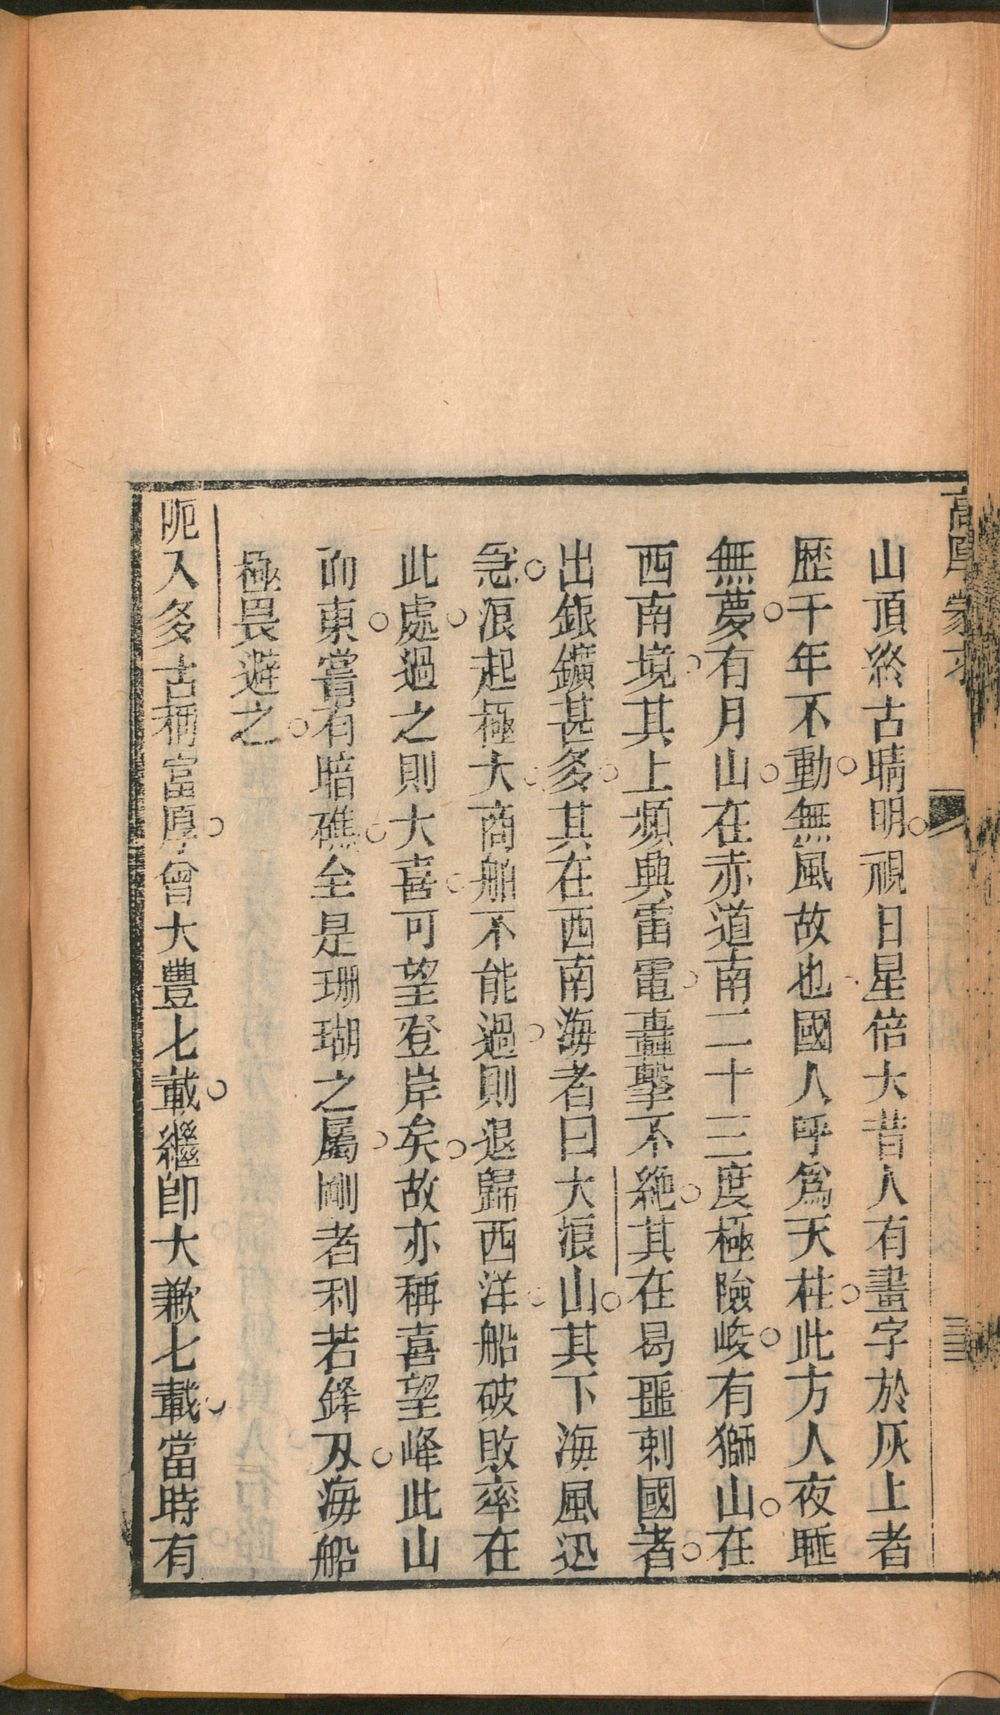 萬國
山頂終古晴明視日星倍大昔人有畫字於灰上者
歷千年不動無風故也國人呼爲天柱此方人夜睡
無夢有月山在赤道南二十三度極險峻有獅山在
西南境其上頻興雷電轟擊不絶其在曷噩剌國者
出銀鑛甚多其在西南海者曰大浪山其下海風迅
急浪起極大商舶不能過則退歸西洋船破敗率在
此處過之則大喜可望登岸矣故亦稱喜望峰此山
而東嘗有暗礁全是珊瑚之屬剛者利若鋒刃海船
極畏避之
阨入多古稱富厚曾大豊七載繼即大歉七載當時有